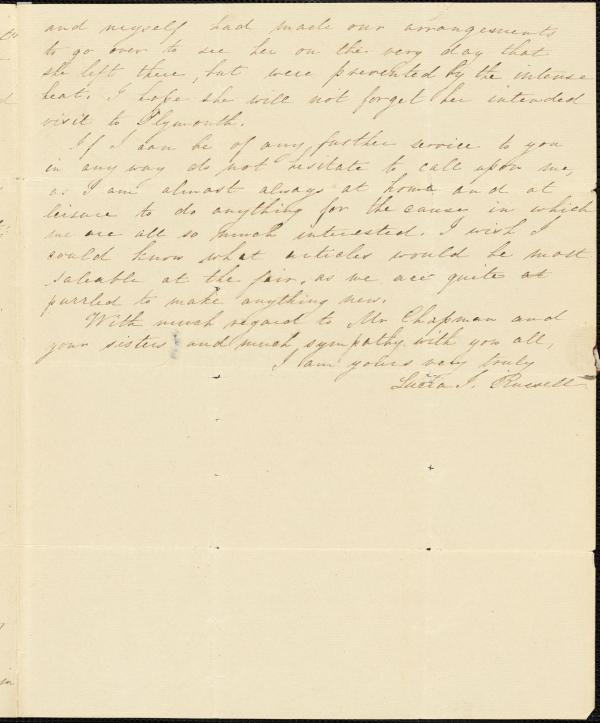 and myself had made our arrangements
to go over to see her on the very day that
she left there, but were prevented by the intense
heat. I hope she will not forget her intended
visit to Plymouth.
If I can be of any further service to you
in any way do not hesitate to call upon me,
as I am almost always at home and at
leisure to do anything for the cause in which
we are all so much interested. I wish I
could know what articles would be most
saleable at the fair, as we are quite at
puzzled to make anything new.
With much regard to Mr Chapman and
your sisters and much sympathy with you all,
I am yours very truly
Lucia J. Russell